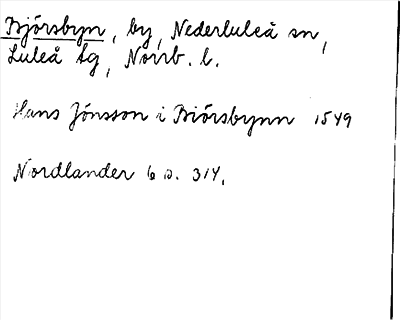 Björsbyn, by, Nederluleå sn,
Luleå tg, Norrb. l.
Hans Jönsson i Biörsbynn 1549
Nordlander 6 s. 314.